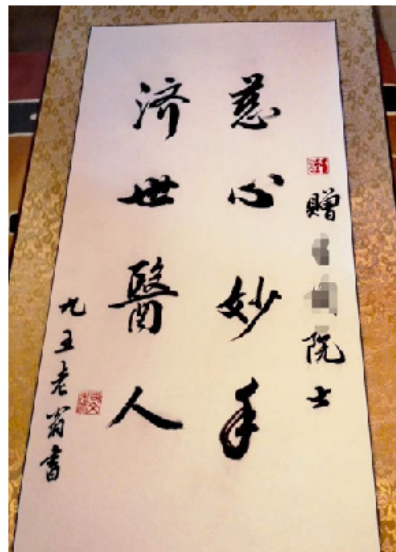 赠院士
慈心妙手
济世醫人
九五老翁書